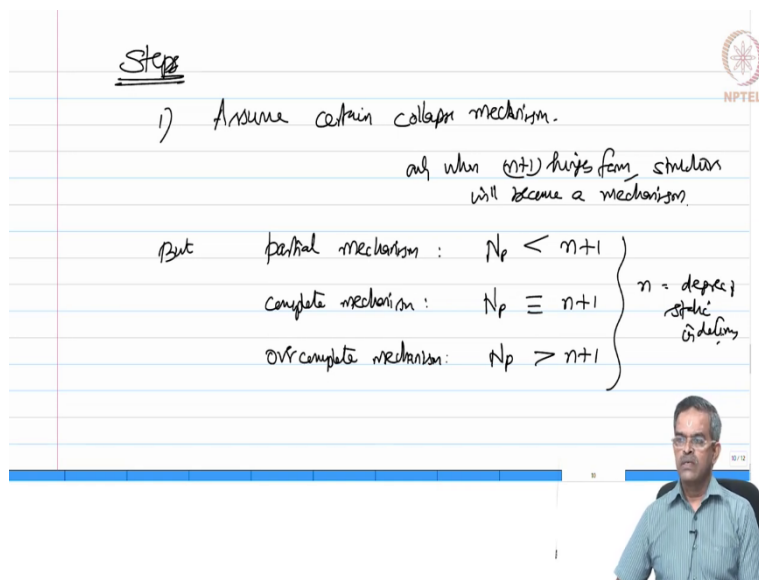 Steps
1) Assume certain collapse mechanism.
only when (n+1) hinges form, structure
will become a mechanism.
But partial mechanism : Np < n+1
complete mechanism : Np ≡ n+1
overcomplete mechanism: Np > n+1
n = degree of
static
indeterm
NPTEL
10/12